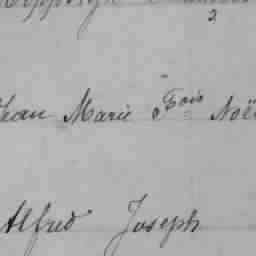 3
Jean Marie Fois Noë
Alfred Joseph